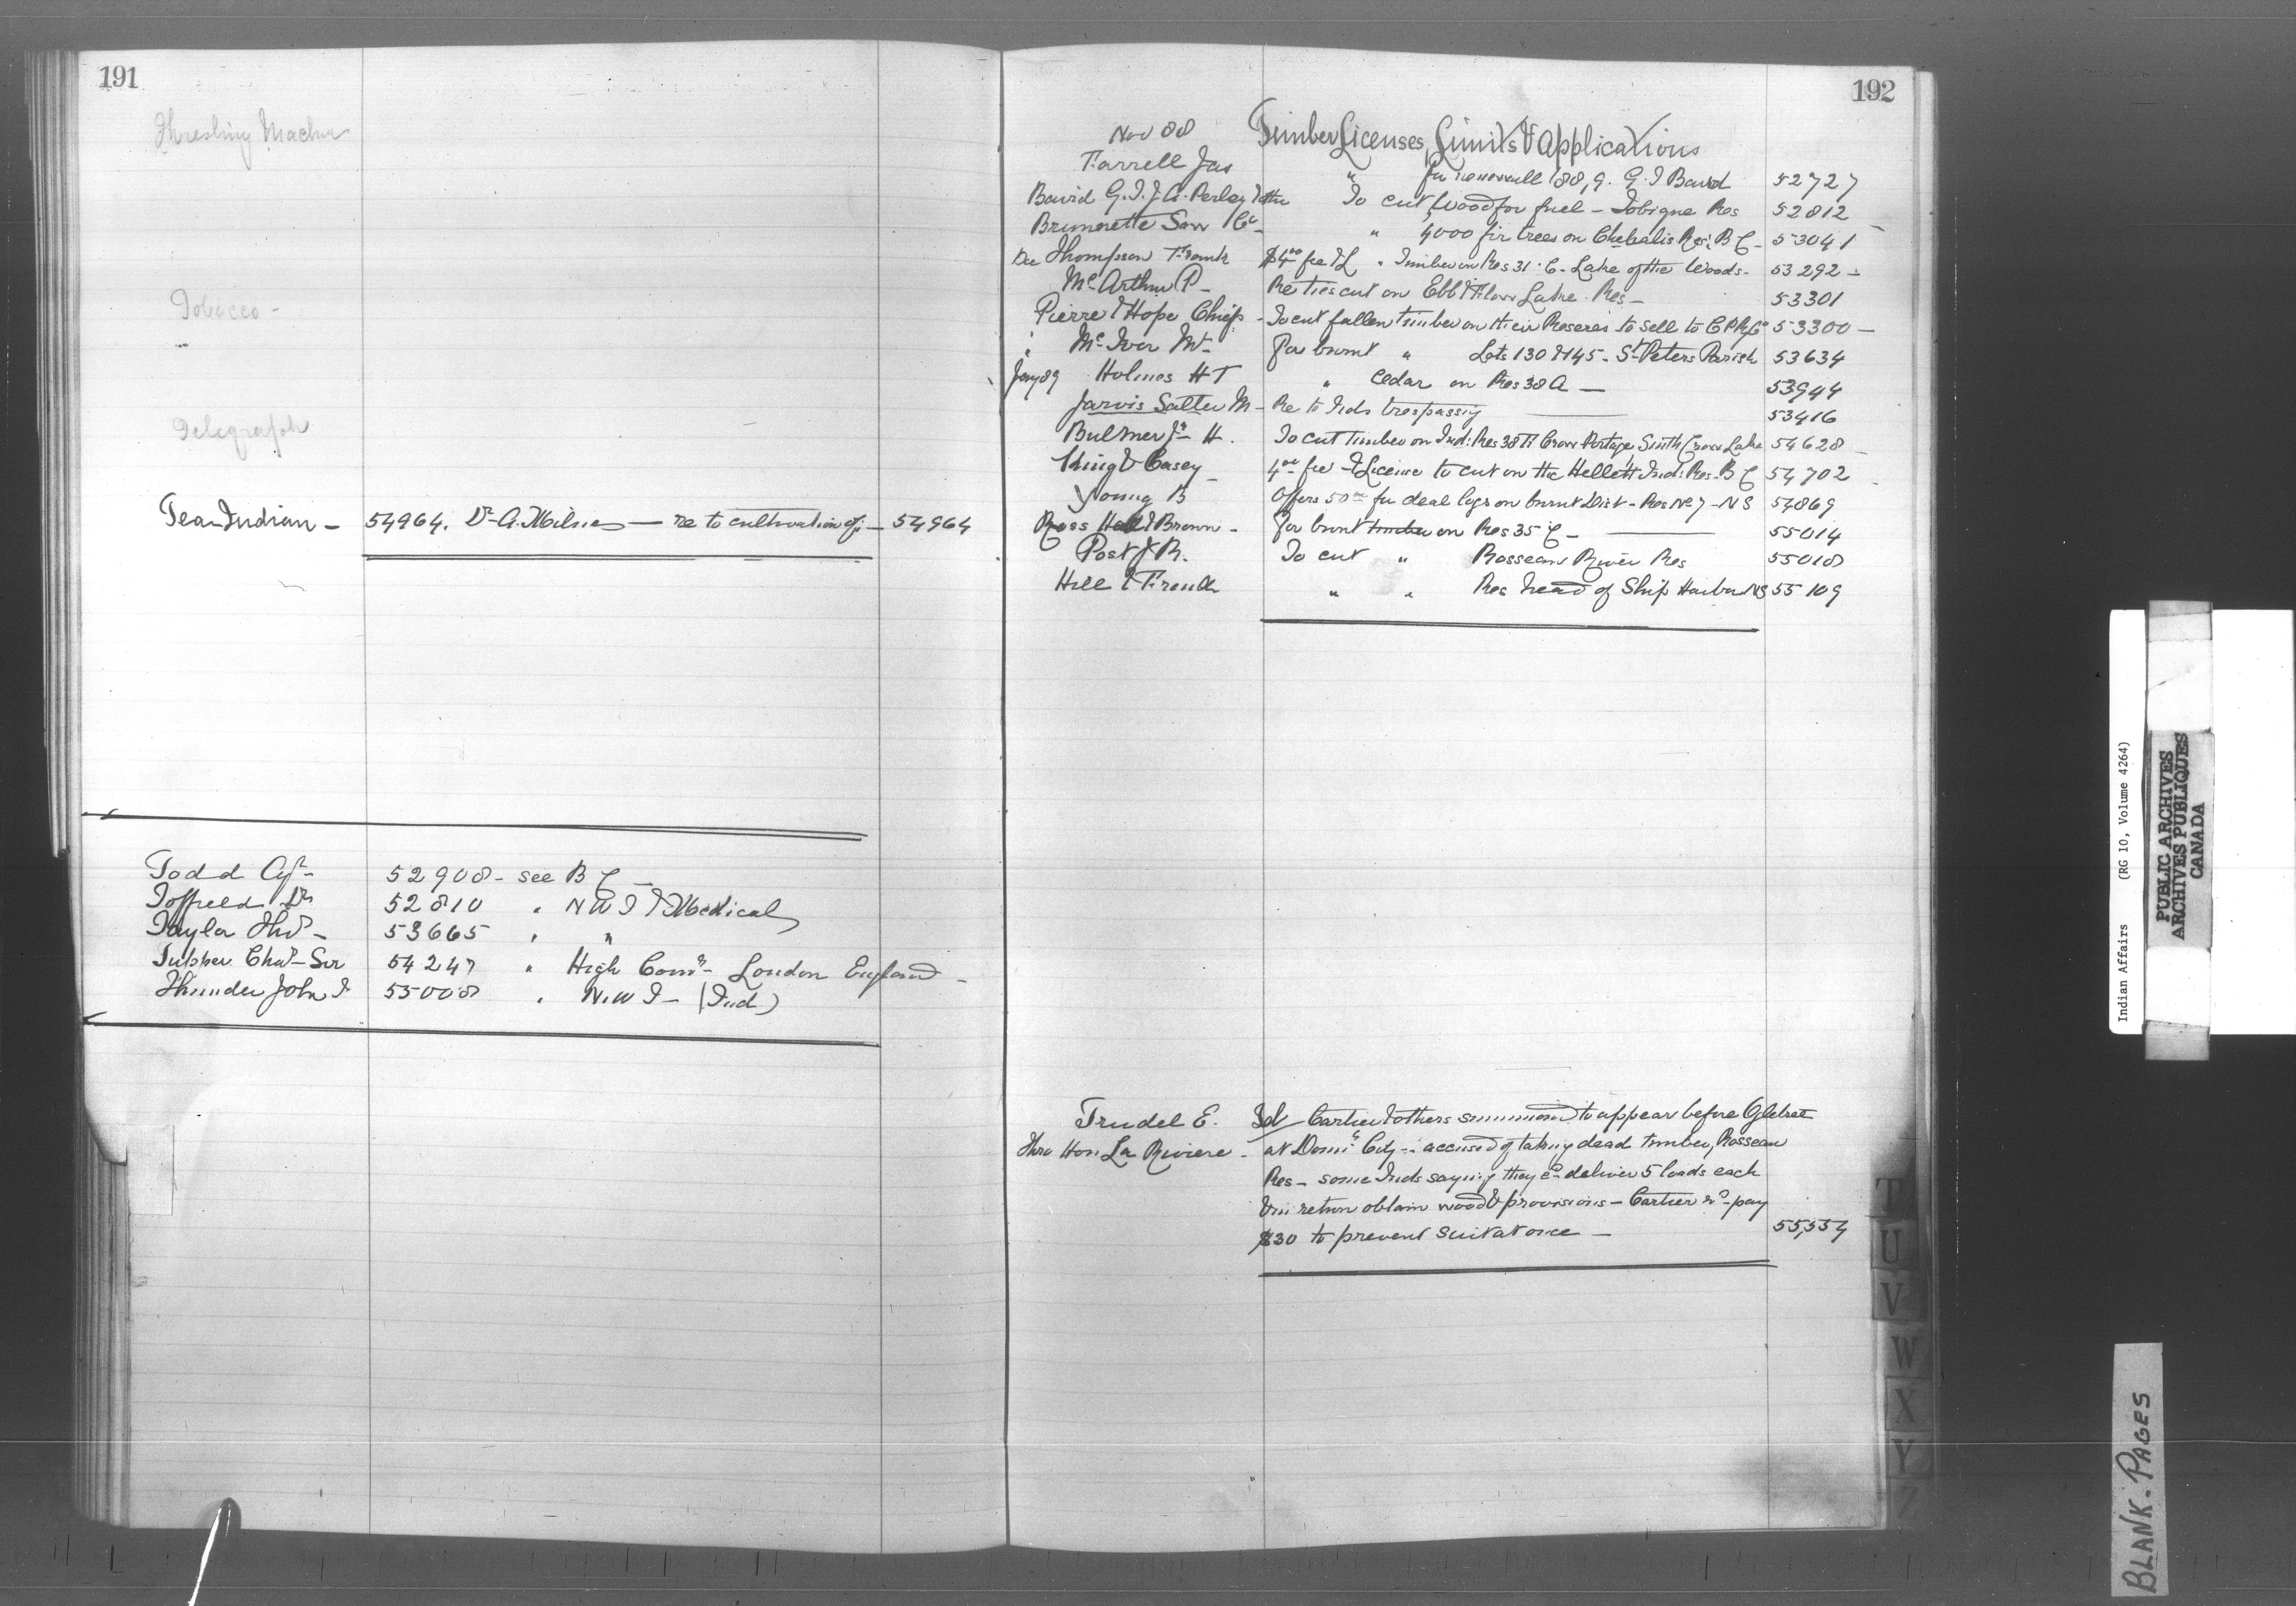 191
Threshing Machine
Tobacco -
Telegraph
Tea - Indian - 54964. Dr A. Milne — re to cultivation of: — 54964
Todd A - 52908 - see B C -
Toffield Dr 52810 " N W T & Medical
Taylor Thos - 53665 " "
Tupper Chas - Sir 54247 " High Comr - London England -
Thunder John I 55008 " N.W T - (Ind)
192
Nov 88 Timber Licenses, Limits & Applications
Farrell Jas " for 188, 9. G. I Baird 52727
Baird G. T. & A. Perley & othe To cut Wood for fuel - Tobique Res 52812
Brunette Saw Co - " 4000 fir trees on Chehalis Res: B C - 53041
Dec Thompson Frank $4.00 fee & L " Timber on Res 31. C. Lake of the Woods - 53292 -
McArthur P - Re ties cut on Ebb & Flow Lake Res - 53301
Pierre & Hope Chiefs - To cut fallen timber on their Reserves to sell to C P Ry Co 53300 -
" McIver Mr For burnt " Lots 130 & 145 - St Peters Parish 53634
Jany 89 Holmes H T " Cedar on Res 38 A — 53944
Jarvis Salter M - Re to Inds trespassing — 53416
Bulmer Jr H. To cut timber on Ind: Res 38 Crow Portage Crow Lake 54628 -
King & Casey - 4.00 fee & License to cut on the Hellett Ind: Res - B C 54702
Young B Offers 50.00 for deal logs on burnt Dist - Res No 7 - N S 54869
Ross Hall & Brown - For burnt timber on Res 35 C - — 55014
Post J R. To cut " Rosseau River Res 55018
Hill & French " " Res head of Ship Harbor NS 55109
Trudel E. Cartier & others summoned to appear before
thro Hon La Riviere - at Domn City - accused of taking dead timber, Rosseau
Res - some Inds saying they cd deliver 5 loads each
& in return obtain wood & provisions - Cartier pay
$30 to prevent suit at once — 55,554
T
U
V
W
X
Y
Z
Indian Affairs (RG 10, Volume 4264)
PUBLIC ARCHIVES
ARCHIVES PUBLIQUES
CANADA
BLANK. PAGES